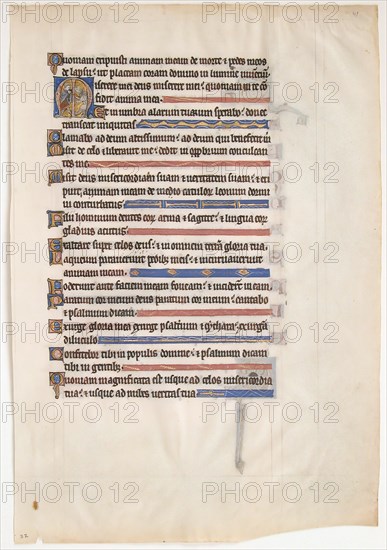 Quoniam eripuisti animam meam de morte ⁊ pedes meos
de lapsu: ut placeam coram domino in lumine
Miserere mei deus miserere mei: quoniam in te con
fidit anima mea.
Et in umbra alarum tuarum sperabo: donec
transeat iniquitas.
Clamabo ad deum altissimum: ad deum qui benefecit
Misit de celo ⁊ liberavit me: dedit in
tes me.
Misit deus misericordiam suam ⁊ veritatem suam ⁊ eri
puit animam meam de medio catulorum leonum dormi
vi conturbatus.
Filii hominum dentes eorum arma ⁊ sagitte: ⁊ lingua eorum
gladius acutus.
Exaltare super celos deus: ⁊ in omnem terram gloria tua.
Laqueum paraverunt pedibus meis: ⁊ incurvaverunt
animam meam.
Foderunt ante faciem meam foveam: ⁊ inciderunt in eam.
Paratum cor meum deus paratum cor meum: cantabo
⁊ psalmum dicam.
Exurge gloria mea exurge psalterium ⁊ cythara: exurgam
diluculo.
Confitebor tibi in populis domine: ⁊ psalmum dicam
tibi in gentibus.
Quoniam magnificata est usque ad celos misericordia
tua: ⁊ usque ad nubes veritas tua.
PHOTO 12